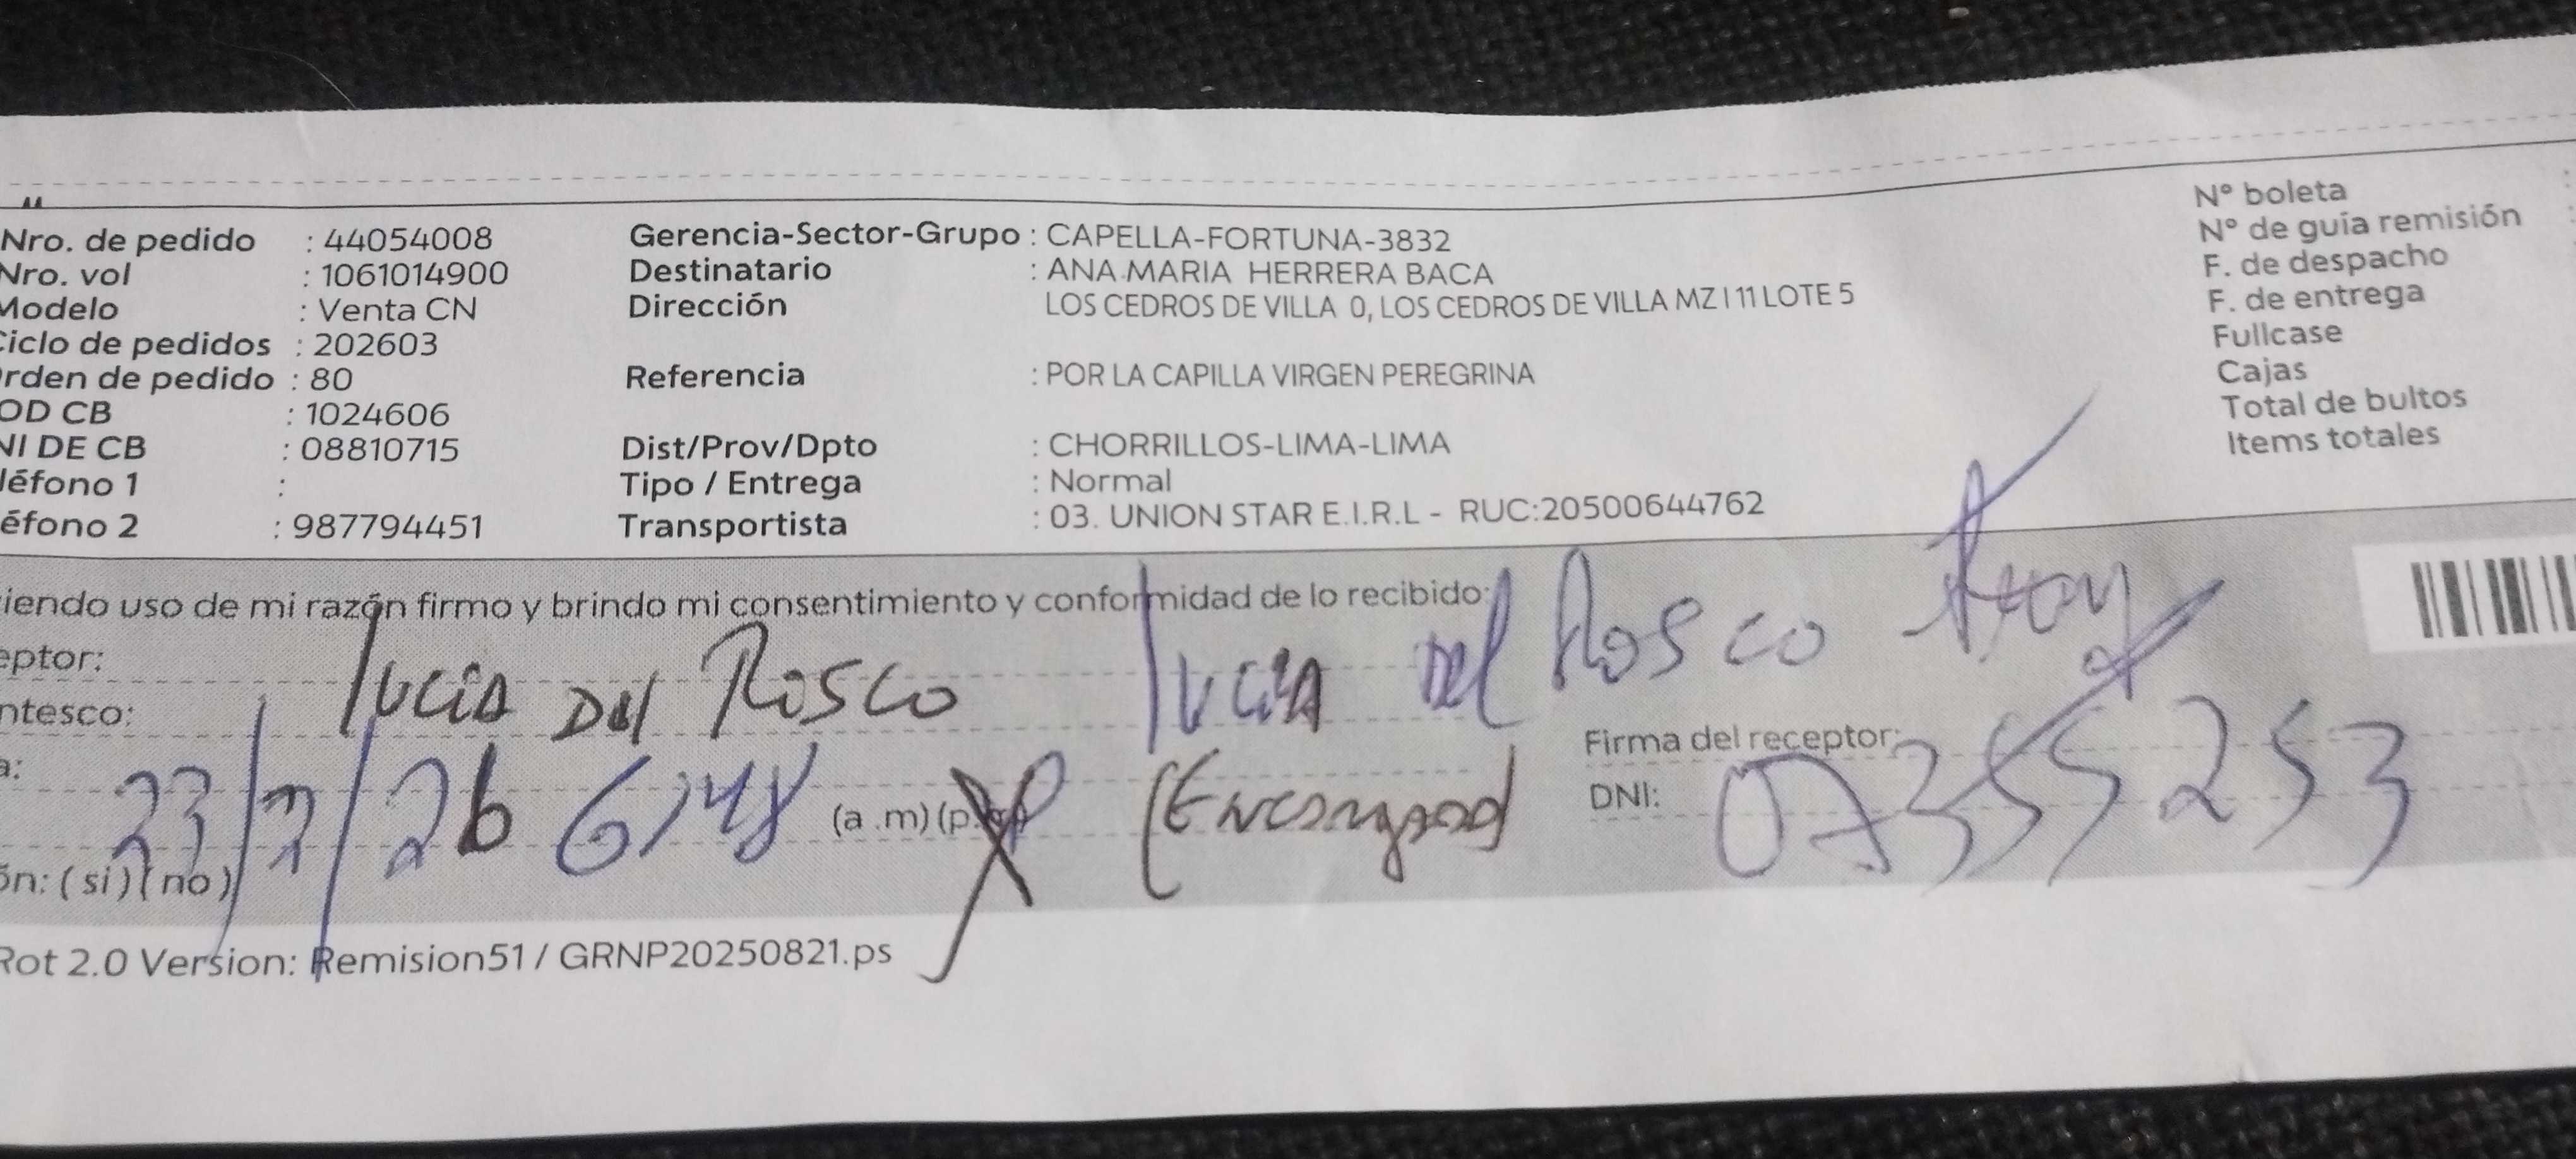 Nro. de pedido : 44054008
Nro. vol : 1061014900
Modelo : Venta CN
Ciclo de pedidos : 202603
rden de pedido : 80
OD CB : 1024606
NI DE CB : 08810715
léfono 1 :
éfono 2 : 987794451
Gerencia-Sector-Grupo : CAPELLA-FORTUNA-3832
Destinatario : ANA MARIA HERRERA BACA
Dirección LOS CEDROS DE VILLA 0, LOS CEDROS DE VILLA MZ I 11 LOTE 5
Referencia : POR LA CAPILLA VIRGEN PEREGRINA
Dist/Prov/Dpto : CHORRILLOS-LIMA-LIMA
Tipo / Entrega : Normal
Transportista : 03. UNION STAR E.I.R.L - RUC:20500644762
N° boleta
N° de guía remisión
F. de despacho
F. de entrega
Fullcase
Cajas
Total de bultos
Items totales
iendo uso de mi razón firmo y brindo mi consentimiento y conformidad de lo recibido:
eptor: Lucia Del Rosco Lucia Del Rosco
ntesco:
Firma del receptor:
a: 23/2/26 6:48 (a.m) (p.m)
DNI: 07355253
ón: (si) (no)
Rot 2.0 Version: Remision51 / GRNP20250821.ps